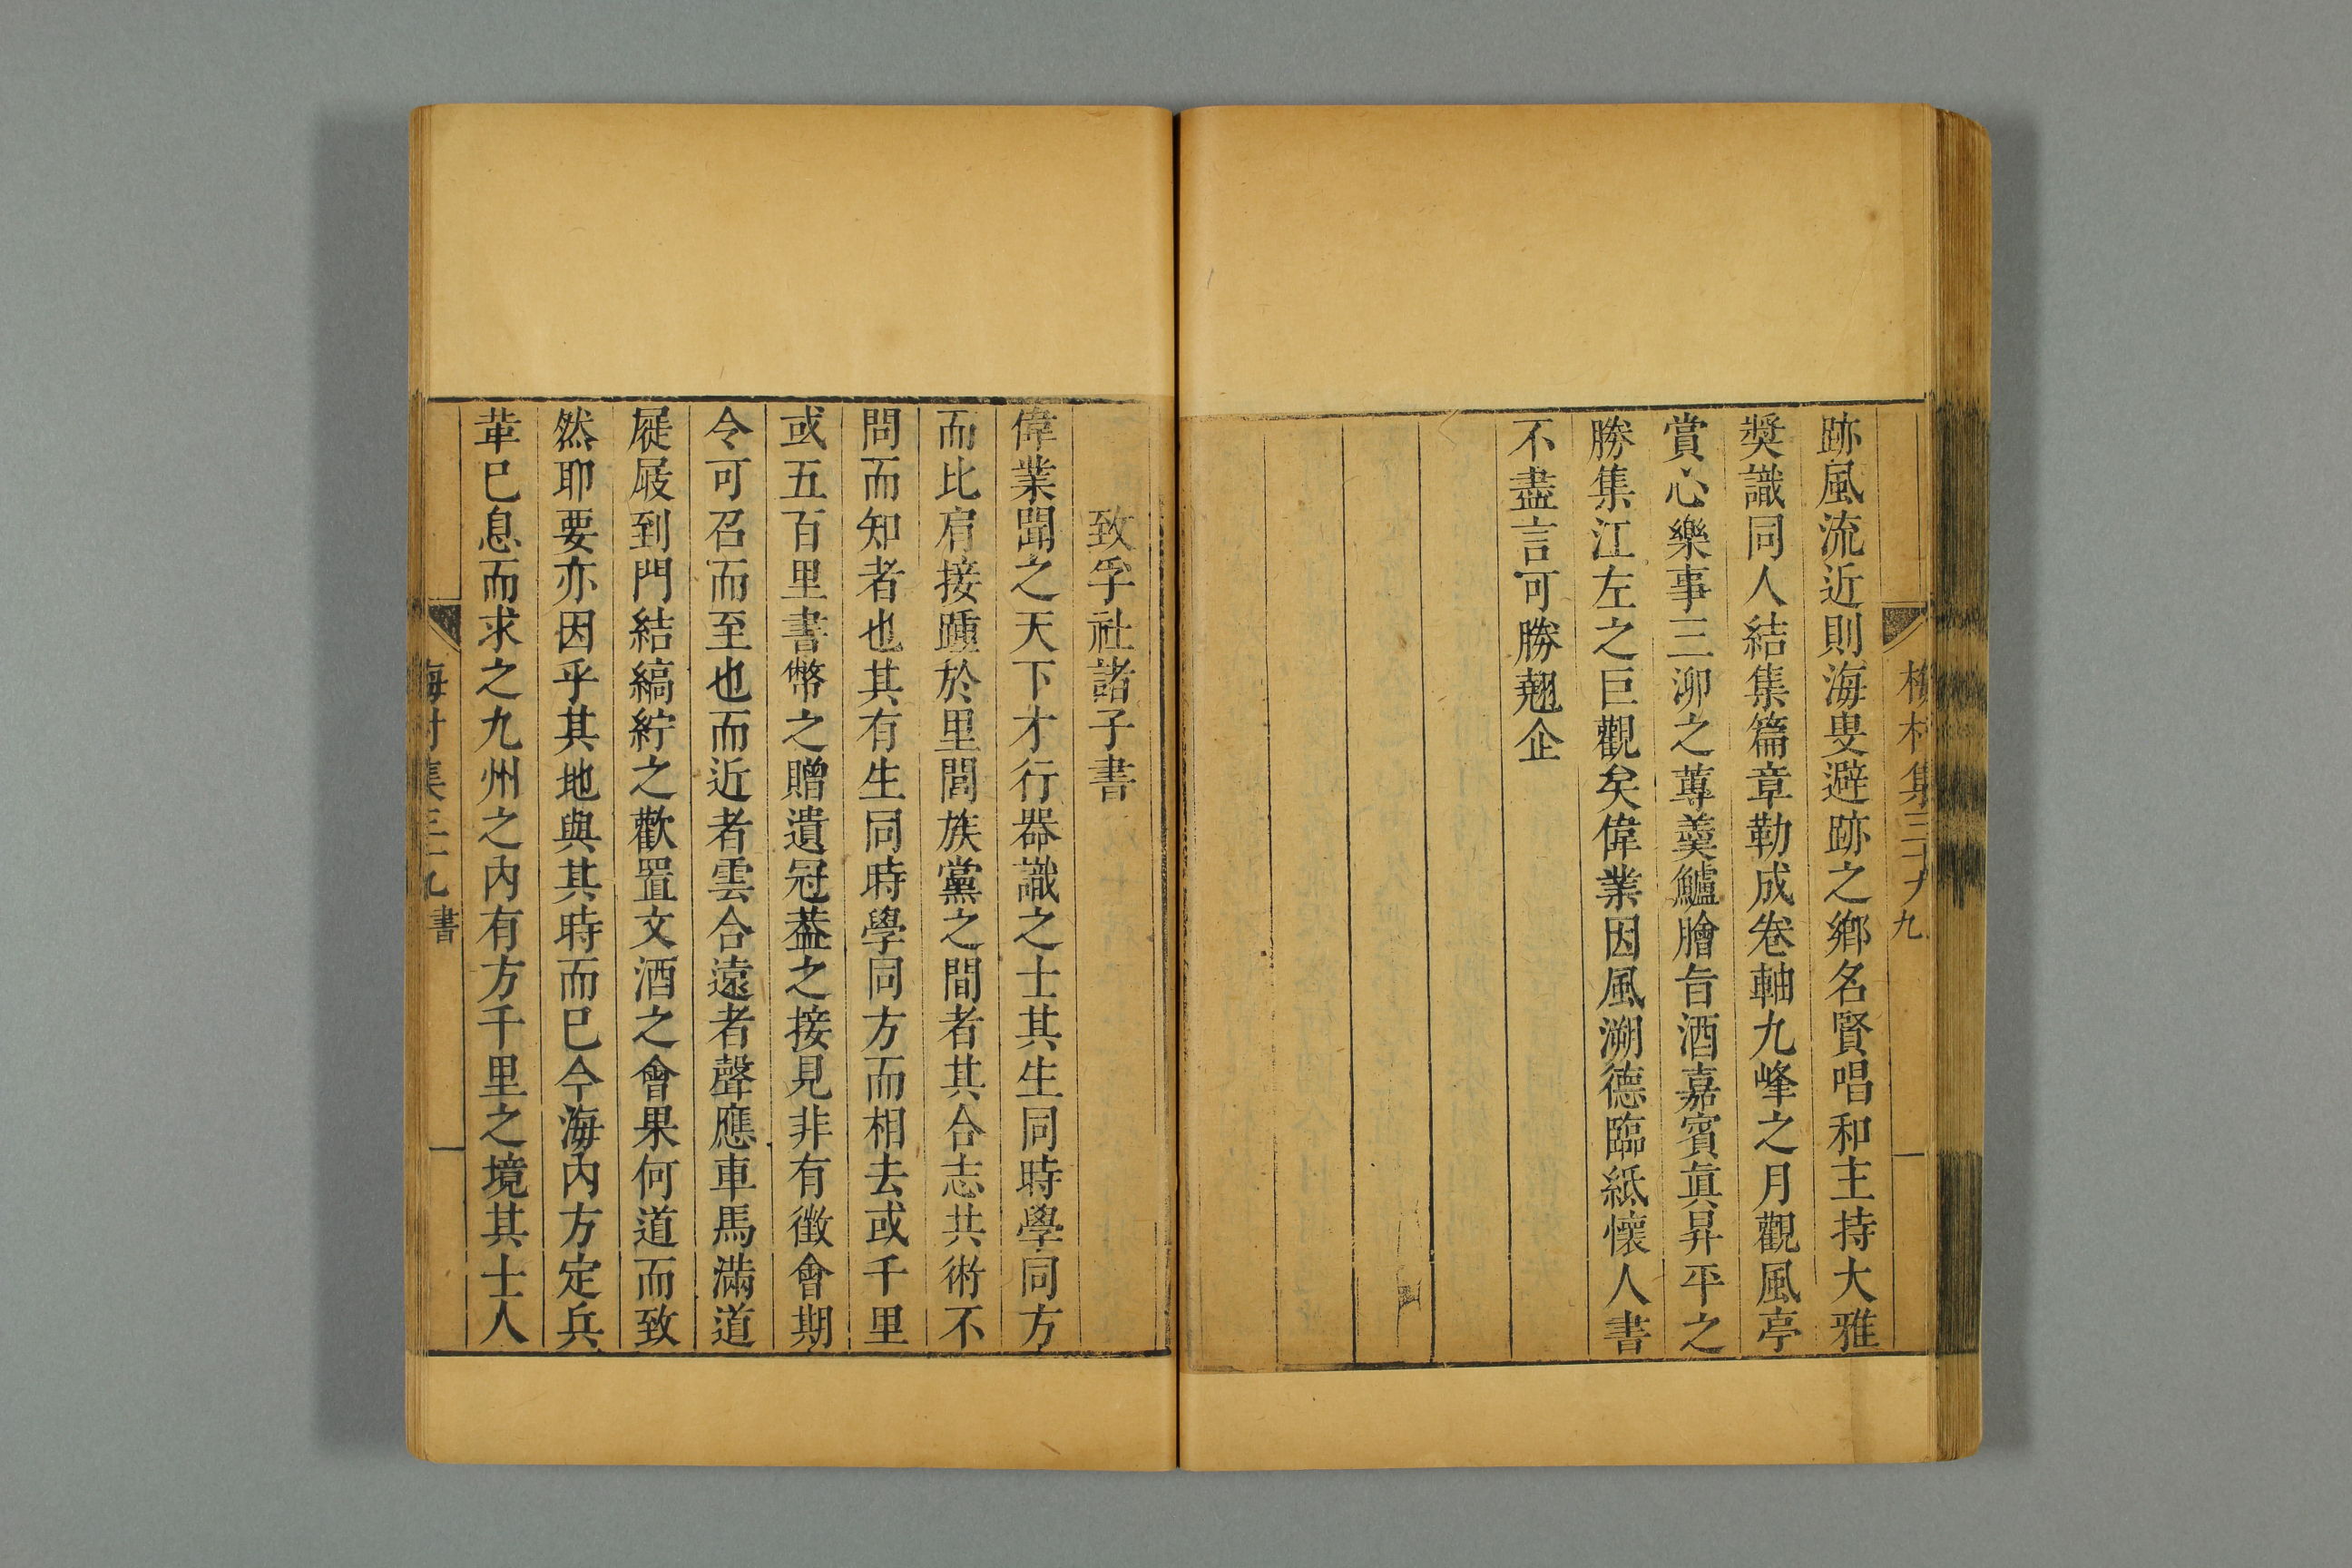 跡風流近則海叟避跡之鄉名賢唱和主持大雅
奬識同人結集篇章勒成卷軸九峰之月觀風亭
賞心樂事三泖之蓴羹鱸膾旨酒嘉賓眞昇平之
勝集江左之巨觀矣偉業因風溯德臨紙懷人書
不盡言可勝翹企
致孚社諸子書
偉業聞之天下才行器識之士其生同時學同方
而比肩接踵於里閭族黨之間者其合志共術不
問而知者也其有生同時學同方而相去或千里
或五百里書幣之贈遺冠葢之接見非有徵會期
令可召而至也而近者雲合遠者聲應車馬滿道
屣屐到門結縞紵之歡置文酒之會果何道而致
然耶要亦因乎其地與其時而巳今海內方定兵
革巳息而求之九州之內有方千里之境其士人
村集三十九
九
書